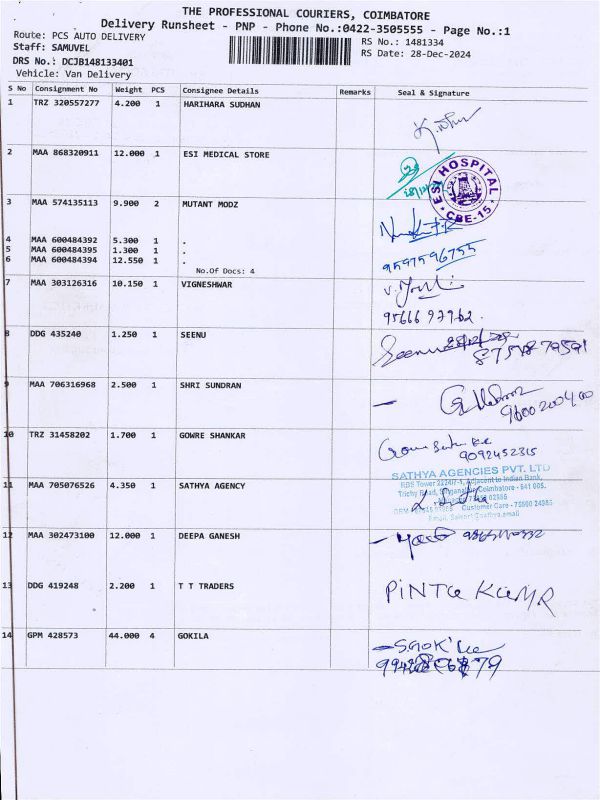 THE PROFESSIONAL COURIERS, COIMBATORE
Delivery Runsheet - PNP - Phone No.:0422-3505555 - Page No.:1
Route: PCS AUTO DELIVERY
Staff: SAMUVEL
DRS No.: DCJB148133401
Vehicle: Van Delivery
RS No.: 1481334
RS Date: 28-Dec-2024
S No Consignment No Weight PCS Consignee Details Remarks Seal & Signature
1 TRZ 320557277 4.200 1 HARIHARA SUDHAN
2 MAA 868320911 12.000 1 ESI MEDICAL STORE
ESI HOSPITAL
CBE-15
3 MAA 574135113 9.900 2 MUTANT MODZ
4 MAA 600484392 5.300 1 .
5 MAA 600484395 1.300 1 .
6 MAA 600484394 12.550 1 .
No.Of Docs: 4
9597596755
7 MAA 303126316 10.150 1 VIGNESHWAR
8 DDG 435240 1.250 1 SEENU
Seenu
9 MAA 706316968 2.500 1 SHRI SUNDRAN
9600200400
10 TRZ 31458202 1.700 1 GOWRE SHANKAR
9092452315
SATHYA AGENCIES PVT. LTD
11 MAA 705076526 4.350 1 SATHYA AGENCY
RBS Tower 2224/7-1, Adjacent to Indian Bank,
Customer Care -
12 MAA 302473100 12.000 1 DEEPA GANESH
13 DDG 419248 2.200 1 T T TRADERS
PiNTU KUMAR
14 GPM 428573 44.000 4 GOKILA